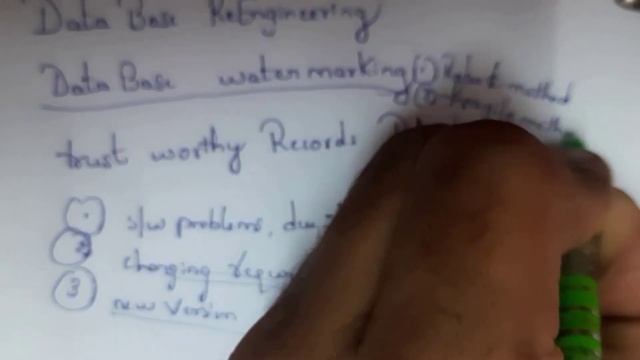 Data Base ReEngineering
Data Base watermarking (1) Robust method
(2) Fragile
trust worthy Records
s/w problems, due
2 changing requ
3 new version